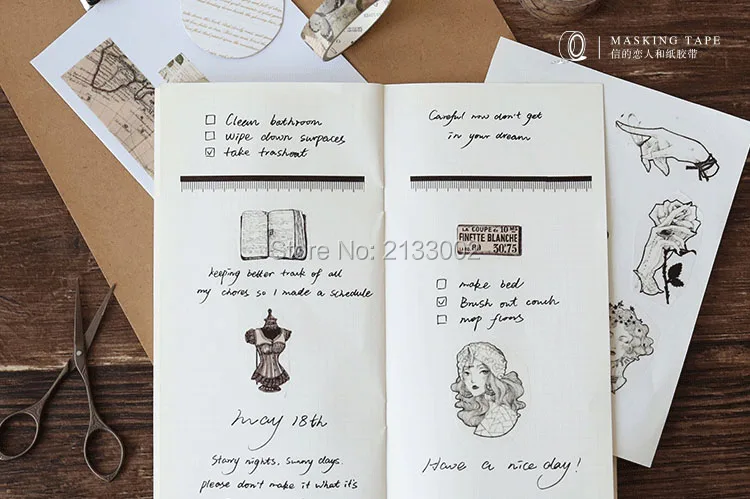 MASKING TAPE
信的恋人和纸胶带
Clean bathroom
wipe down surpaces
take trashout
Store No: 2133002
keeping better track of all
my chores so I made a schedule
May 18th
Starry nights, sunny days.
please don't make it what it's
Careful now don't get
in your dream
LA COUPE de 10 MP
FINETTE BLANCHE
30.75
make bed
Brush out couch
mop floors
Have a nice day!